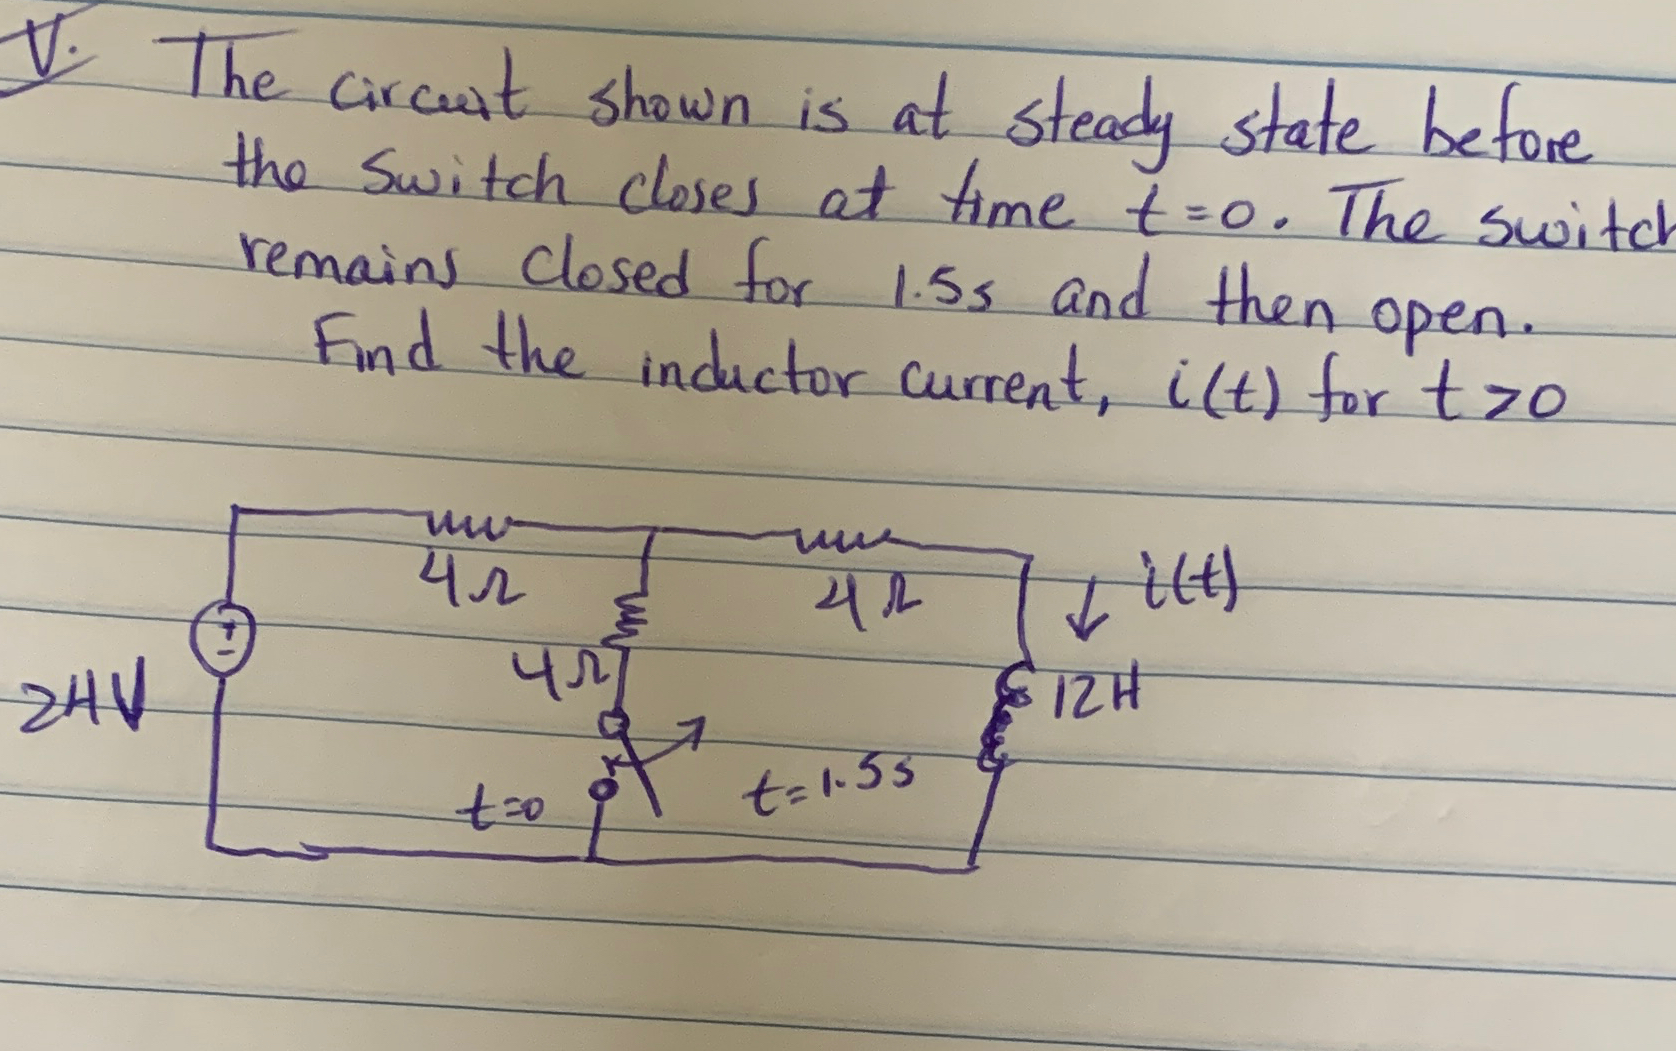 V. The circuit shown is at steady state before
the switch closes at time t=0. The switch
remains closed for 1.5s and then open.
Find the inductor current, i(t) for t>0
4Ω
4Ω
i(t)
4Ω
12H
24V
t=0
t=1.5s